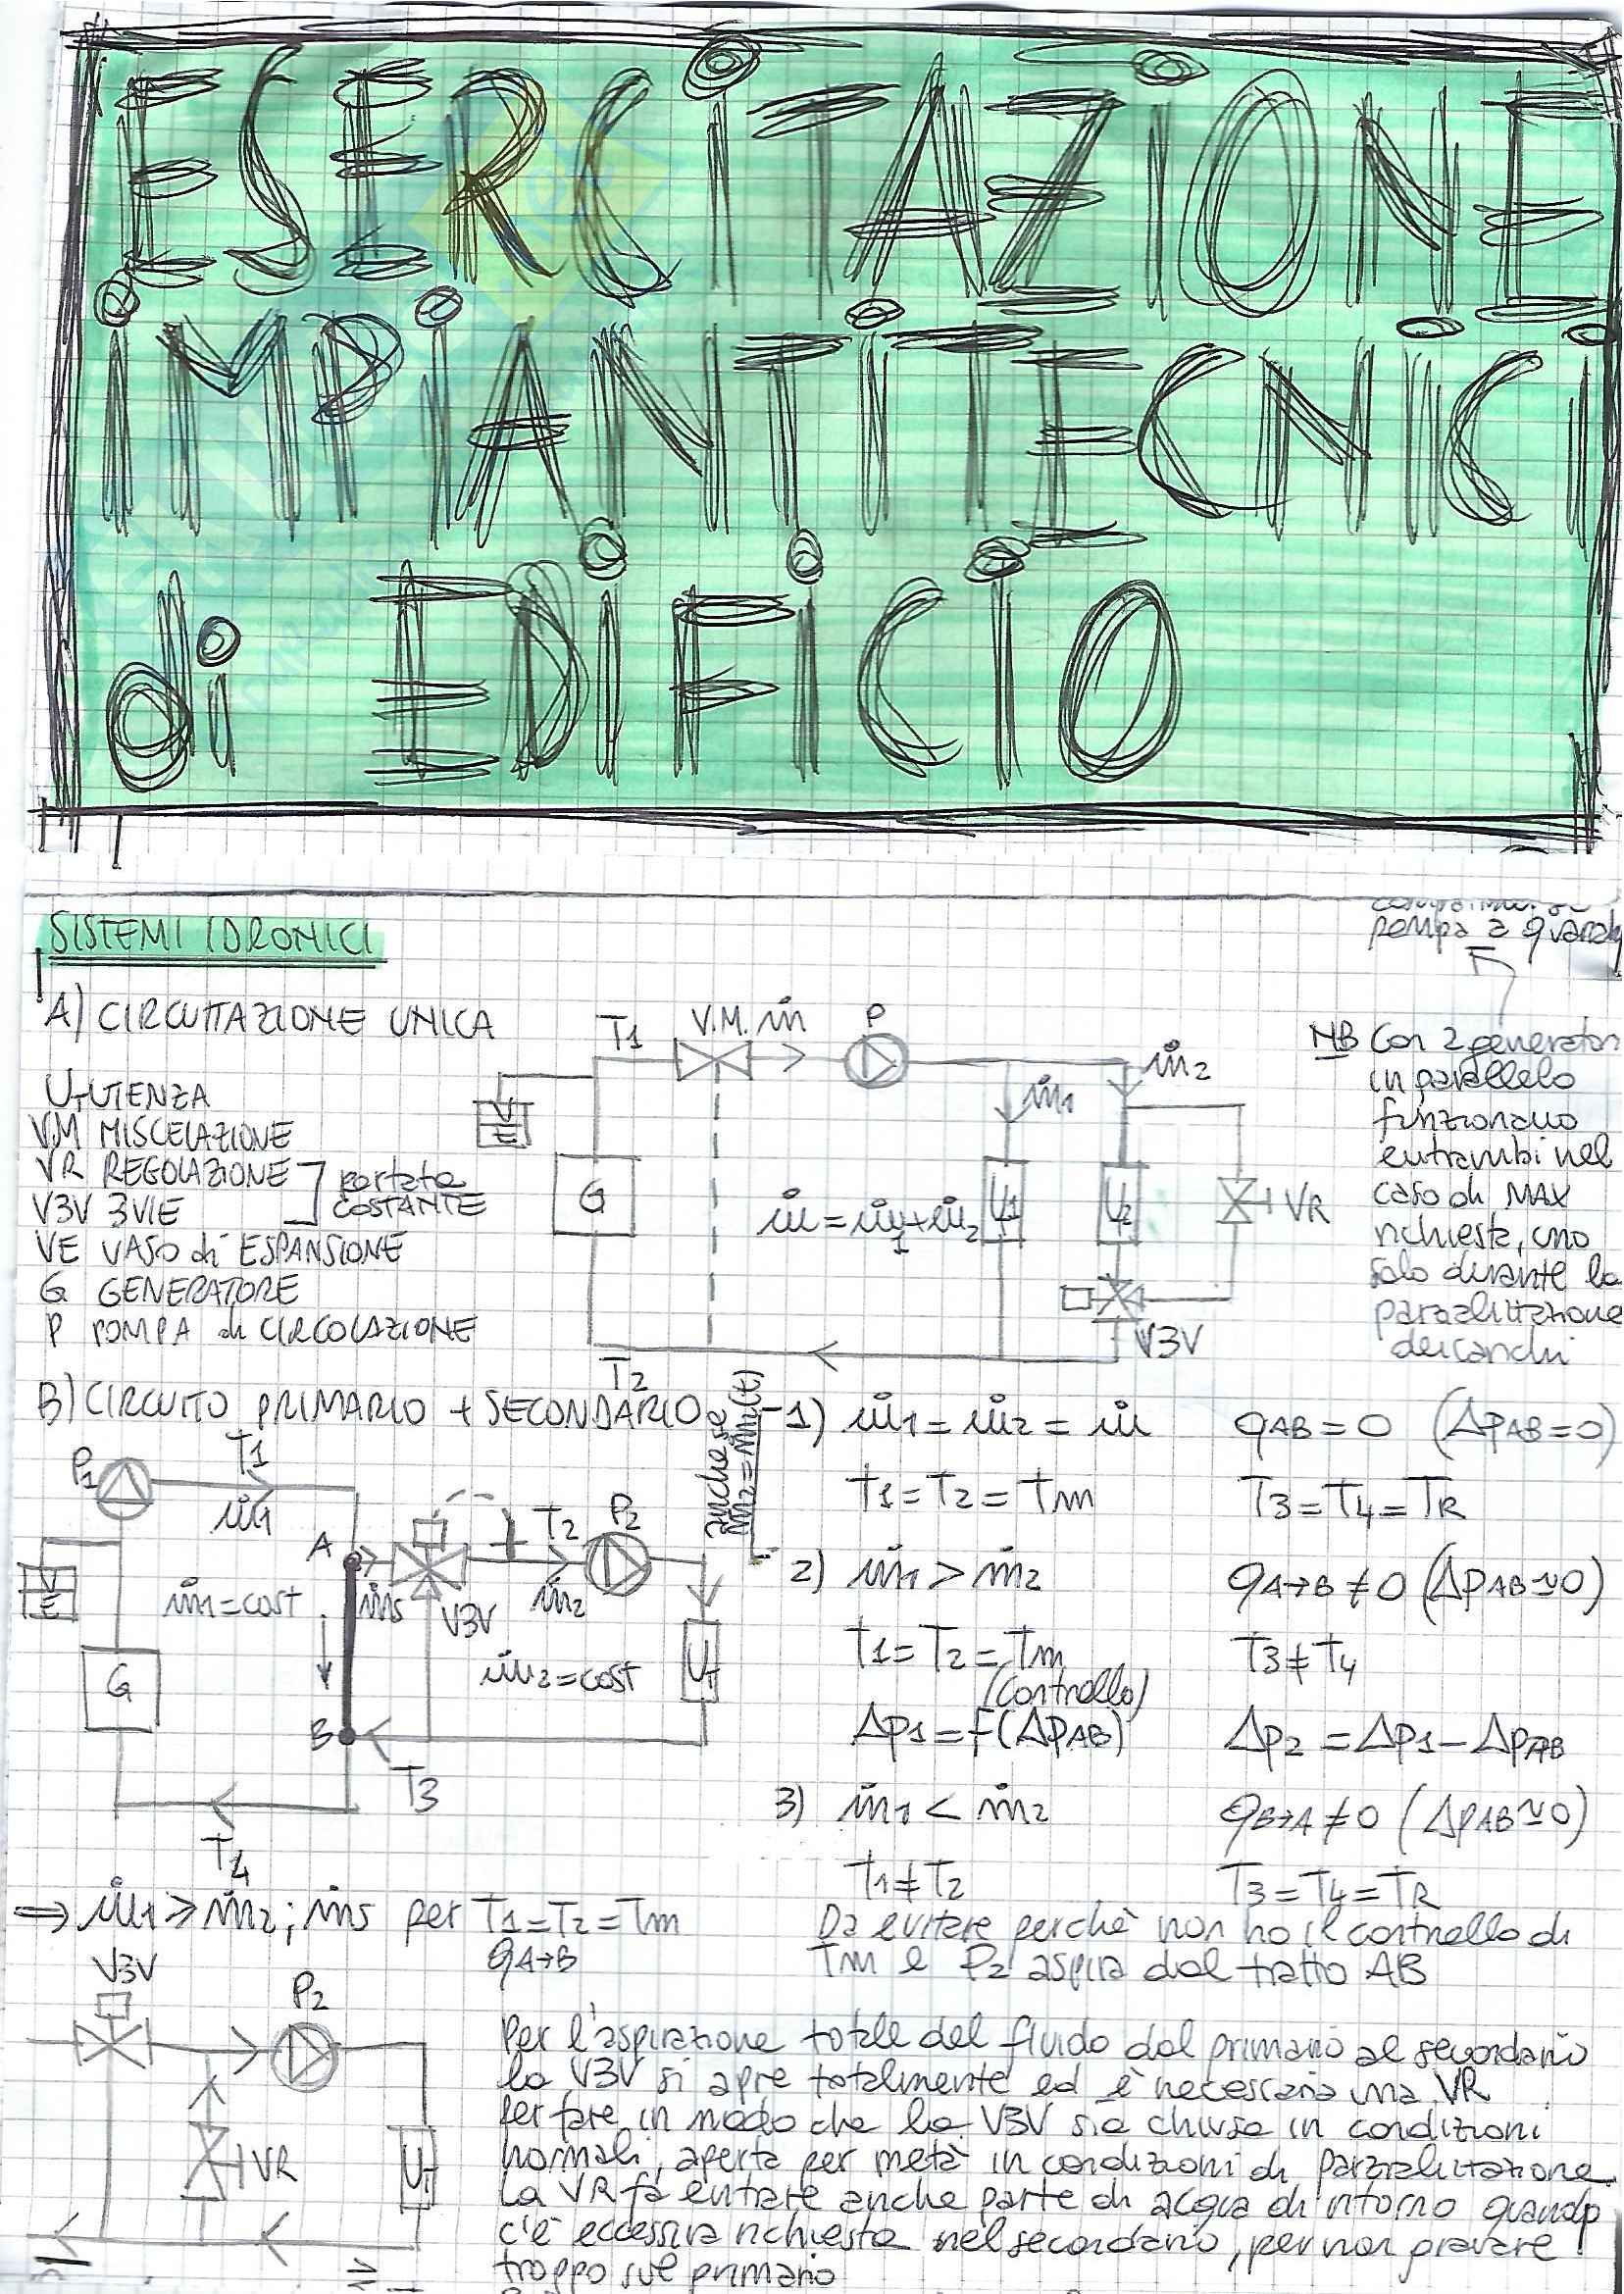 ESERCITAZIONE
IMPIANTI TECNICI
di EDIFICIO
SISTEMI IDRONICI
pompa a
A) CIRCUITAZIONE UNICA
T1 V.M. ṁ P
ṁ2
ṁ1
UT UTENZA
VM MISCELAZIONE
VR REGOLAZIONE
V3V 3VIE
portata
COSTANTE
VE VASO di ESPANSIONE
G GENERATORE
P POMPA di CIRCOLAZIONE
VE
G
ṁ = ṁ1 + ṁ2
U1
U2
VR
V3V
T2
NB Con 2 generatori
in parallelo
funzionano
entrambi nel
caso di MAX
richiesta, uno
solo durante la
parzializzazione
dei carichi
B) CIRCUITO PRIMARIO + SECONDARIO
anche se
ṁ2 = ṁ2(t)
P1 T1
ṁ1
A
VE
ṁ1 = cost
ṁs
V3V
T2
ṁ2
P2
G
ṁ2 = cost
UT
B
T3
T4
1) ṁ1 = ṁ2 = ṁ qAB = 0 (ΔpAB = 0)
T1 = T2 = Tm T3 = T4 = TR
2) ṁ1 > ṁ2 qA→B ≠ 0 (ΔpAB ≃ 0)
T1 = T2 = Tm T3 ≠ T4
(controllo)
Δp1 = f(ΔpAB) Δp2 = Δp1 - ΔpAB
3) ṁ1 < ṁ2 qB→A ≠ 0 (ΔpAB ≃ 0)
T1 ≠ T2 T3 = T4 = TR
Da evitare perchè non ho il controllo di
Tm e P2 aspira dal tratto AB
⇒ ṁ1 ≥ ṁ2; ṁs per T1 = T2 = Tm
qA→B
V3V
P2
VR
UT
Per l'aspirazione totale del fluido dal primario al secondario
la V3V si apre totalmente ed è necessaria una VR
per fare in modo che la V3V sia chiusa in condizioni
normali, aperta per metà in condizioni di parzializzazione.
La VR fa entrare anche parte di acqua di ritorno quando
c'è eccessiva richiesta nel secondario, per non gravare
troppo sul primario